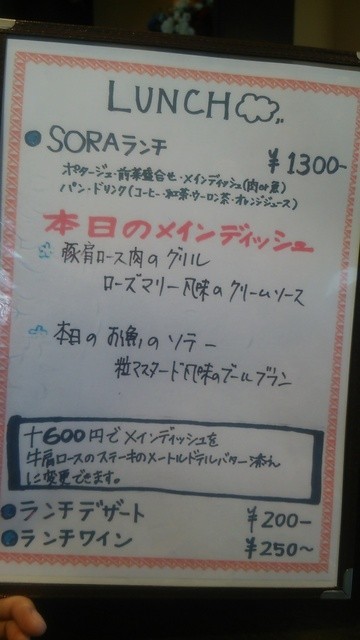 LUNCH
SORAランチ ¥1300-
ポタージュ・前菜盛合せ・メインディッシュ(肉or魚)
パン・ドリンク(コーヒー・紅茶・ウーロン茶・オレンジジュース)
本日のメインディッシュ
豚肩ロース肉のグリル
ローズマリー風味のクリームソース
本日のお魚のソテー
粒マスタード風味のブールブラン
+600円でメインディッシュを
牛肩ロースのステーキのメートルドテルバター添え
に変更できます。
ランチデザート ¥200-
ランチワイン ¥250~